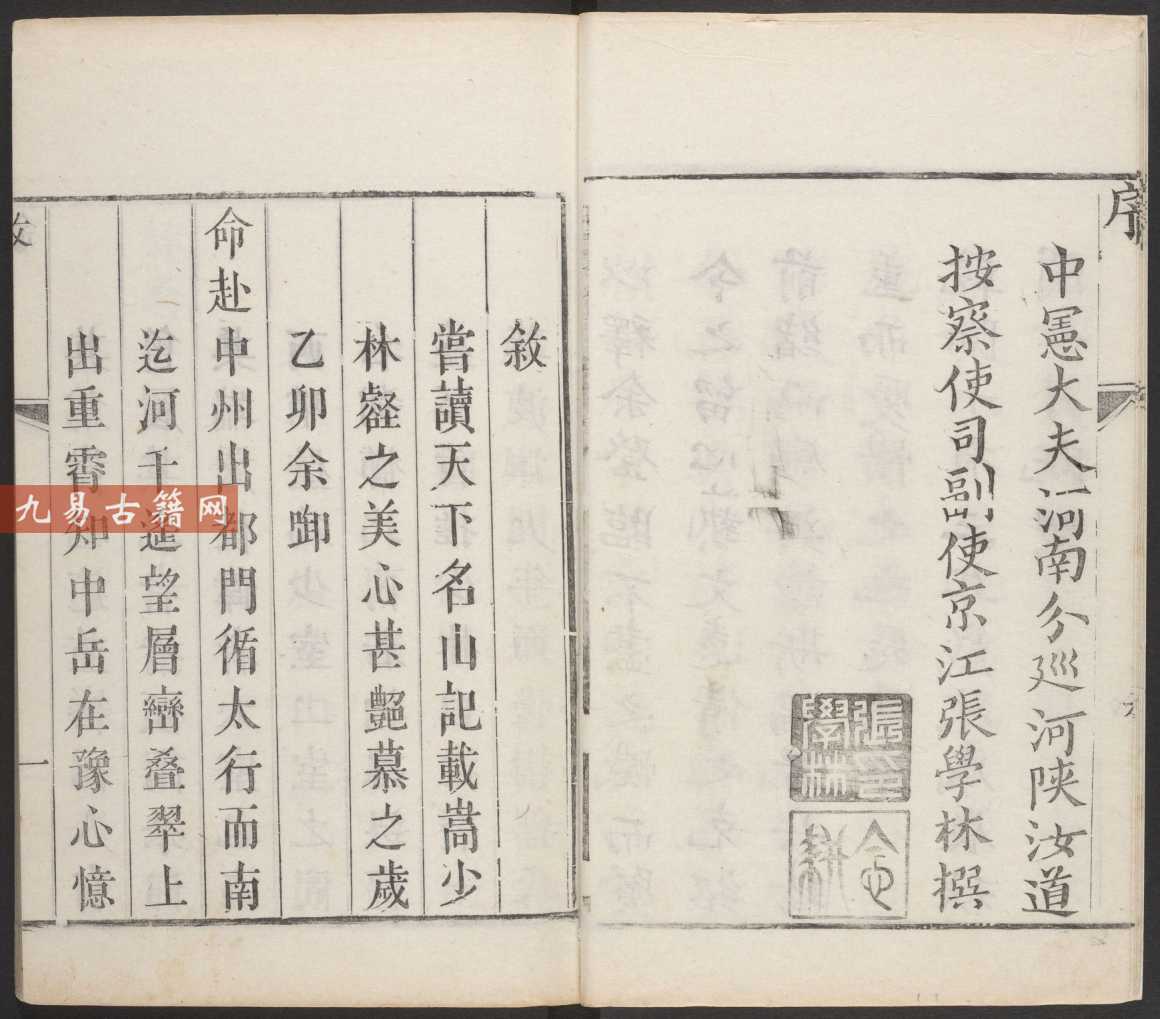 序
中憲大夫河南分巡河陝汝道
按察使司副使京江張學林撰
張學林印
敘
嘗讀天下名山記載嵩少
林壑之美心甚艷慕之歲
乙卯余啣
命赴中州出都門循太行而南
迄河干遙望層巒叠翠上
出重霄知中岳在豫心憶
一
九易古籍网